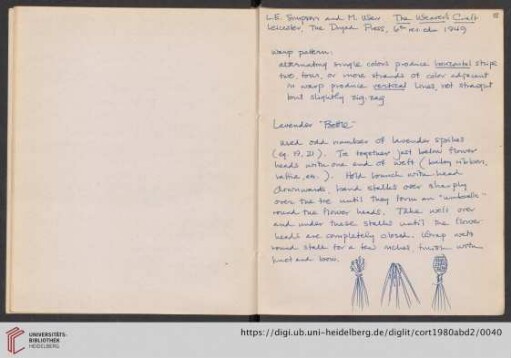 L.E. Simpson and M. Weir The Weaver's Craft
Leicester, The Dryad Press, 6th rev. edn 1949
Warp pattern:
alternating single colors produce horizontal stripe
two, four, or more strands of color adjacent
in warp produce vertical lines, not straight
but slightly zig-zag
Lavender "Bottle"
used odd number of lavender spikes
(eg. 19, 21). Tie together just below flower
heads with one end of weft (baby ribbon,
raffia, etc.). Hold bunch with head
downwards, bend stalks over sharply
over the tie until they form an "umbrella"
round the flower heads. Take weft over
and under these stalks until the flower
heads are completely closed. Wrap weft
round stalk for a few inches, finish with
knot and bow.
UNIVERSITÄTS-
BIBLIOTHEK
HEIDELBERG
https://digi.ub.uni-heidelberg.de/diglit/cort1980abd2/0040